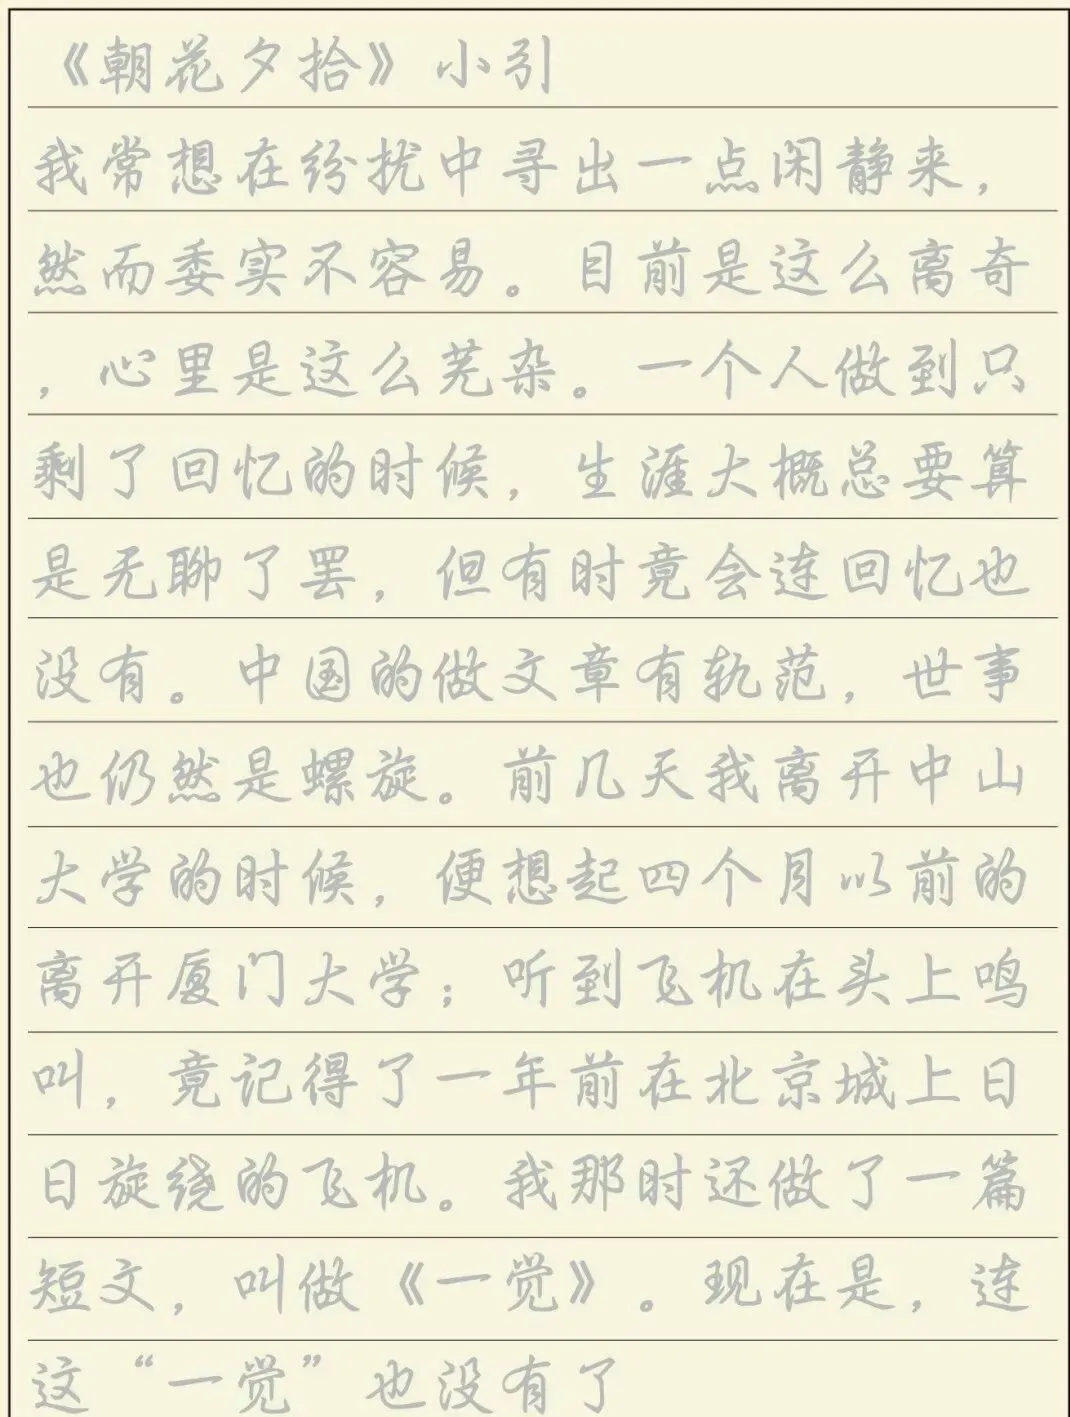 《朝花夕拾》小引
我常想在纷扰中寻出一点闲静来，
然而委实不容易。目前是这么离奇
，心里是这么芜杂。一个人做到只
剩了回忆的时候，生涯大概总要算
是无聊了罢，但有时竟会连回忆也
没有。中国的做文章有轨范，世事
也仍然是螺旋。前几天我离开中山
大学的时候，便想起四个月以前的
离开厦门大学；听到飞机在头上鸣
叫，竟记得了一年前在北京城上日
日旋绕的飞机。我那时还做了一篇
短文，叫做《一觉》。现在是，连
这“一觉”也没有了